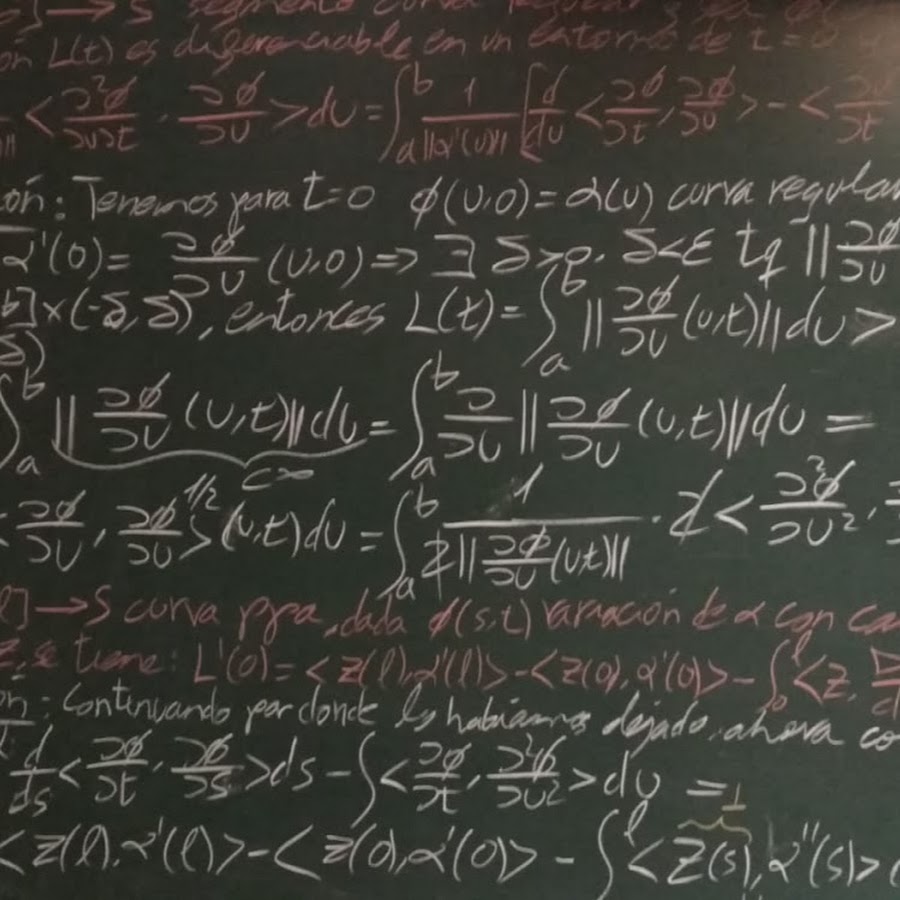 → S segmento curva regular y sea
L(t) es diferenciable en un entorno de t=0 y
<∂²ϕ/∂u∂t, ∂ϕ/∂u>du = ∫ₐᵇ 1/||α'(u)|| [d/du <∂ϕ/∂t, ∂ϕ/∂u> - <∂ϕ/∂t
ón: Tenemos para t=0 ϕ(u,0)=α(u) curva regular
α'(0)= ∂ϕ/∂u (u,0) => ∃ δ>0, δ<ε tq ||∂ϕ/∂u
b]×(-δ,δ), entonces L(t)= ∫ₐᵇ ||∂ϕ/∂u (u,t)||du >
δ)
∫ₐᵇ ||∂ϕ/∂u (u,t)||du = ∫ₐᵇ ∂/∂u ||∂ϕ/∂u (u,t)||du =
C∞
<∂ϕ/∂u, ∂ϕ/∂u>^1/2 (u,t)du = ∫ₐᵇ 1/2||∂ϕ/∂u (u,t)|| · 2<∂²ϕ/∂u²,
l] → S curva ppa, dada ϕ(s,t) variación de α con ca
se tiene: L'(0)= <Z(l),α'(l)> - <Z(0),α'(0)> - ∫₀ˡ <Z, D
ón: Continuando por donde lo habíamos dejado, ahora co
d/ds <∂ϕ/∂t, ∂ϕ/∂s>ds - ∫<∂ϕ/∂t, ∂²ϕ/∂u²>du =
⊥
<Z(l),α'(l)> - <Z(0),α'(0)> - ∫ˡ <Z(s),α''(s)>